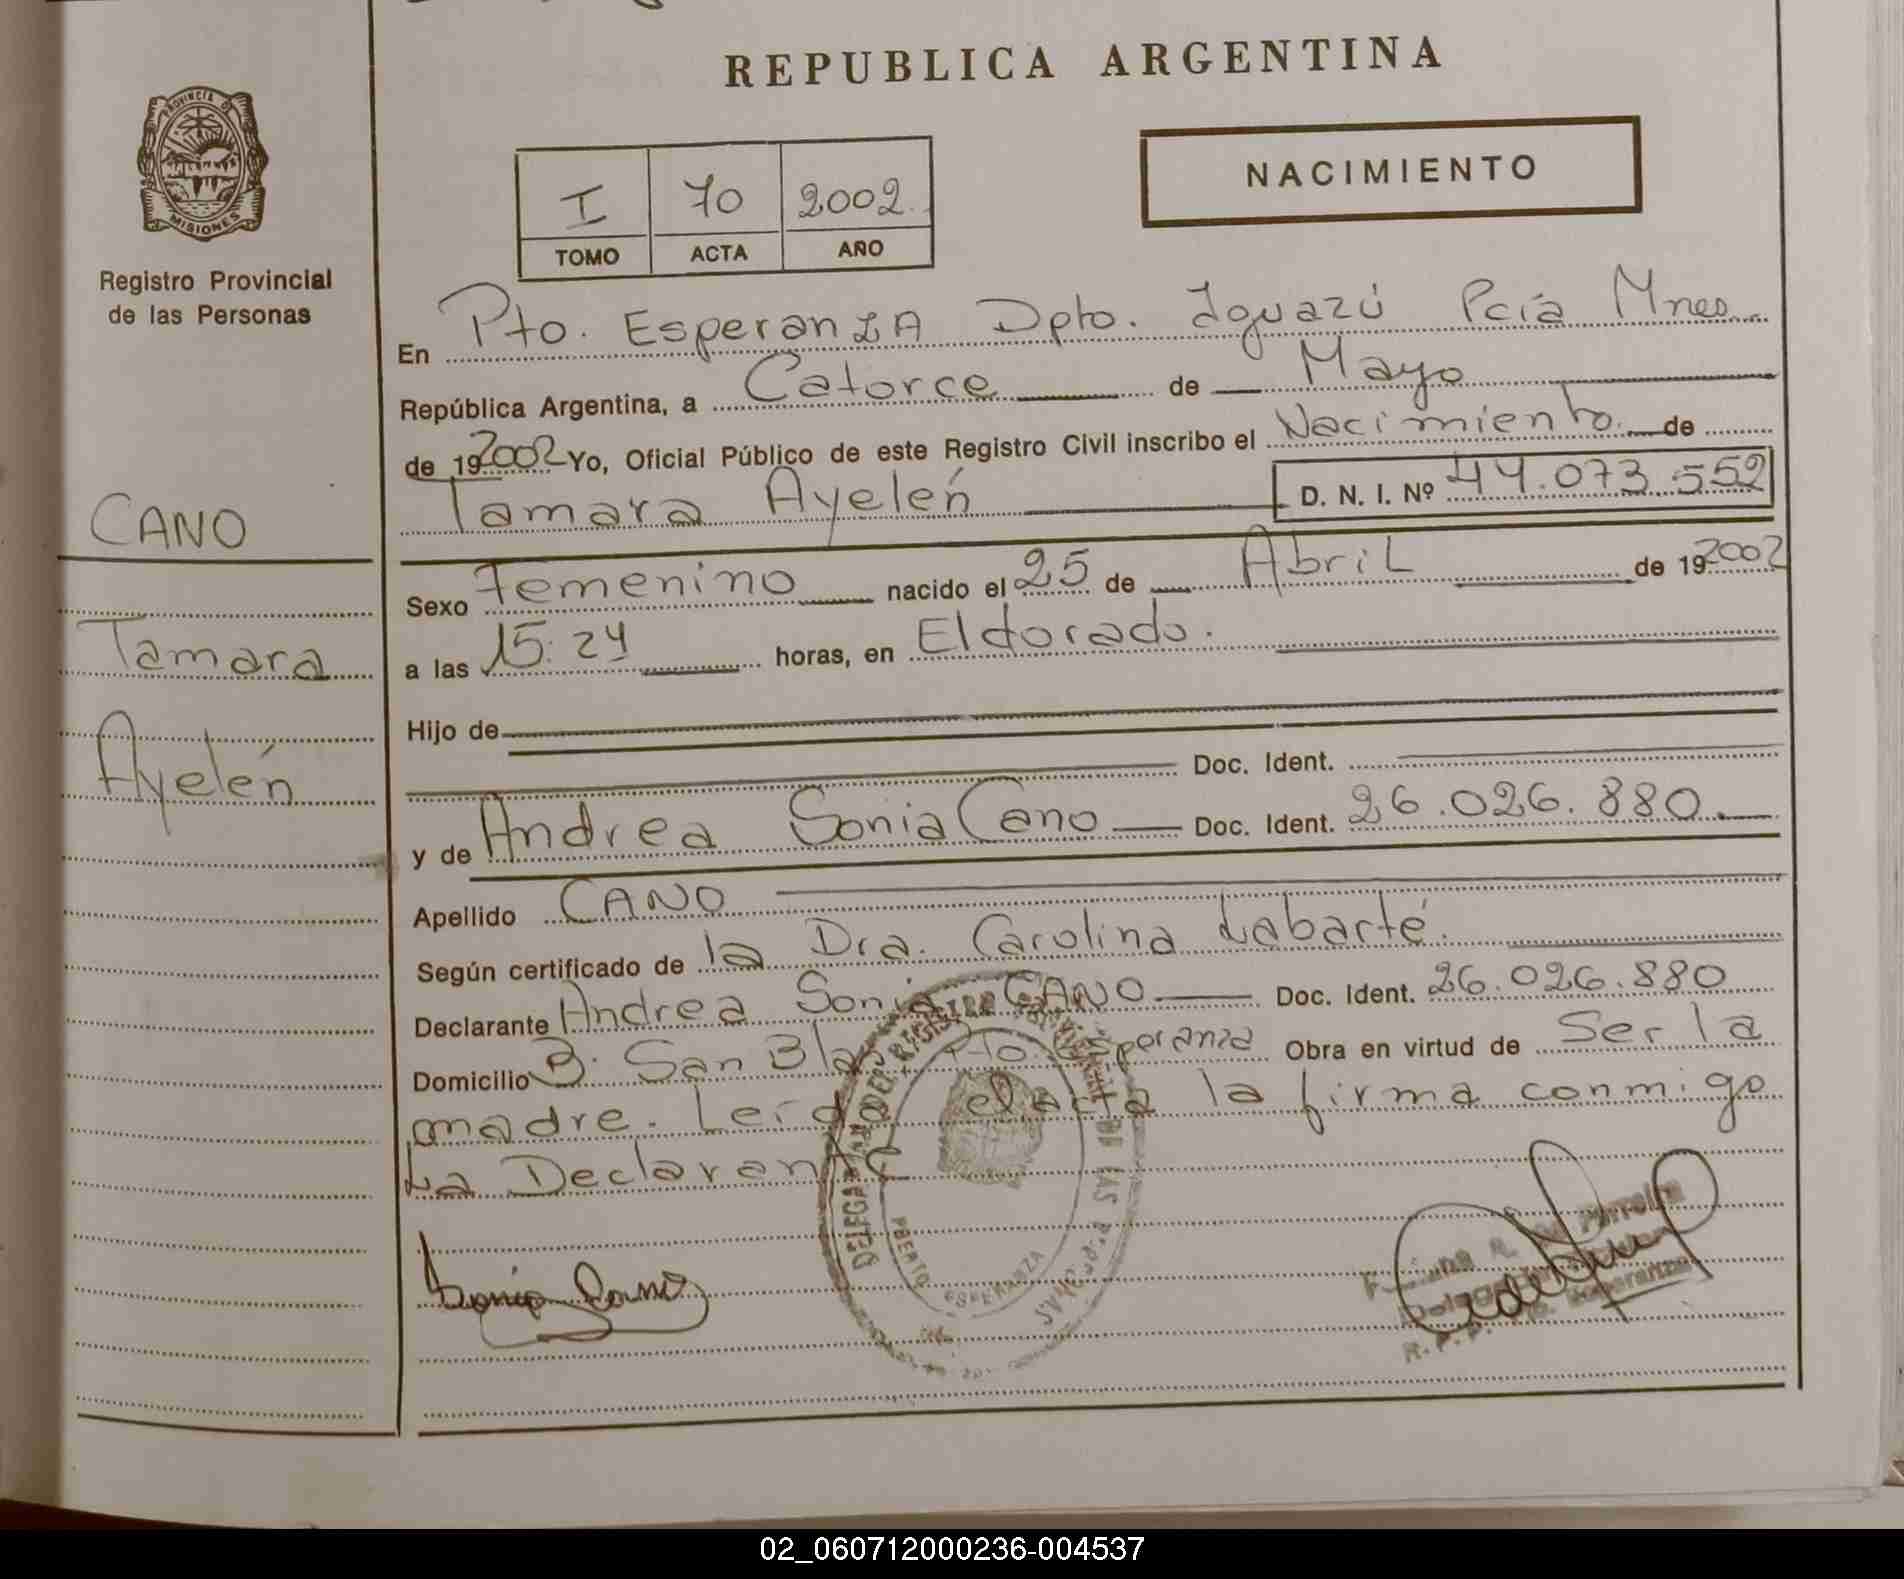 REPUBLICA ARGENTINA
PROVINCIA DE
MISIONES
Registro Provincial
de las Personas
I 70 2002.
TOMO ACTA AÑO
NACIMIENTO
En Pto. Esperanza Dpto. Iguazú Pcia Mnes
República Argentina, a Catorce de Mayo
de 192002 Yo, Oficial Público de este Registro Civil inscribo el Nacimiento de
Tamara Ayelén D. N. I. Nº 44.073.552
CANO
Tamara
Ayelén
Sexo Femenino nacido el 25 de Abril de 192002
a las 15:24 horas, en Eldorado.
Hijo de
Doc. Ident.
y de Andrea Sonia Cano Doc. Ident. 26.026.880
Apellido CANO
Según certificado de la Dra. Carolina Labarté.
Declarante Andrea Sonia CANO Doc. Ident. 26.026.880
Domicilio B. San Blas Pto. Esperanza Obra en virtud de Ser la
madre. Leída el acta la firma conmigo
La Declarante
Sonia Cano
DE LAS
PUERTO ESPERANZA
R. P. P. Pto. Esperanza
02_060712000236-004537